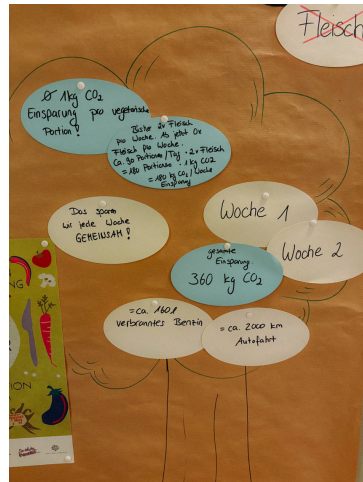 Fleisch
Ø 1kg CO2
Einsparung pro vegetarische
Portion!
Bisher 2x Fleisch
pro Woche. Ab jetzt 0x
Fleisch pro Woche.
Ca. 90 Portionen/Tag · 2x Fleisch
= 180 Portionen · 1 kg CO2
= 180 kg CO2/Woche
Einsparung
Das sparen
wir jede Woche
GEMEINSAM!
Woche 1
Woche 2
gesamte
Einsparung
360 kg CO2
= ca. 160 l
verbranntes Benzin
= ca. 2000 km
Autofahrt
NG
ION